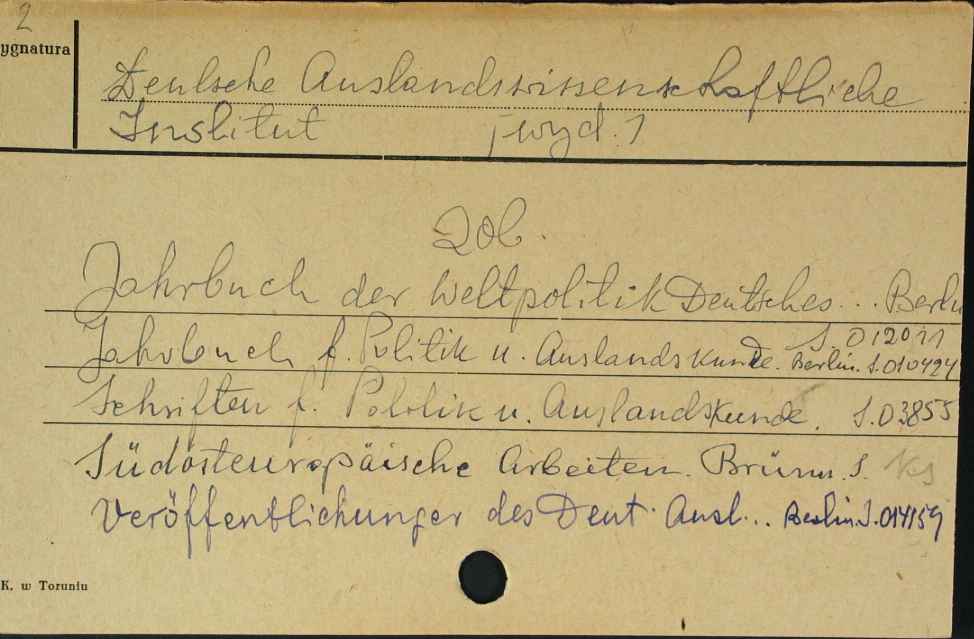 2
ygnatura
Deutsche Auslandswissenschaftliche
Institut [wyd.]
Zob.
Jahrbuch der Weltpolitik Deutsches... Berlin
S. 012011
Jahrbuch f. Politik u. Auslandskunde. Berlin. S. 010424
Schriften f. Politik u. Auslandskunde. S. 03855
Südosteuropäische Arbeiten. Brünn. S.
Veröffentlichungen des Deut. Ausl... Berlin S. 014159
K. w Toruniu